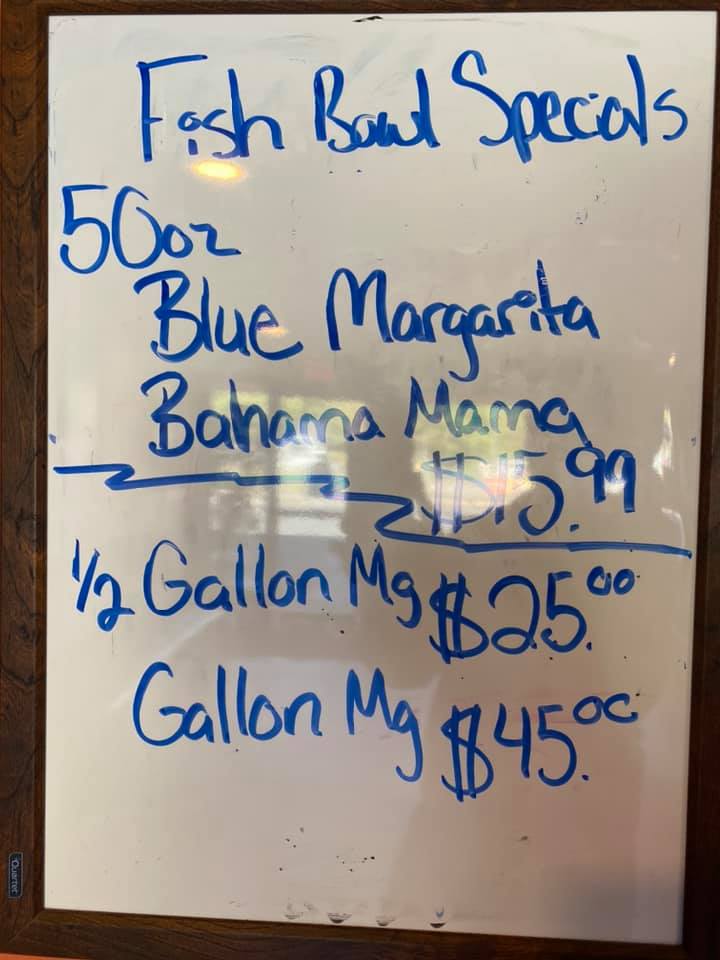 Fish Bowl Specials
50oz
Blue Margarita
Bahama Mama
$15.99
1/2 Gallon Mg $25.00
Gallon Mg $45.00
Quartet